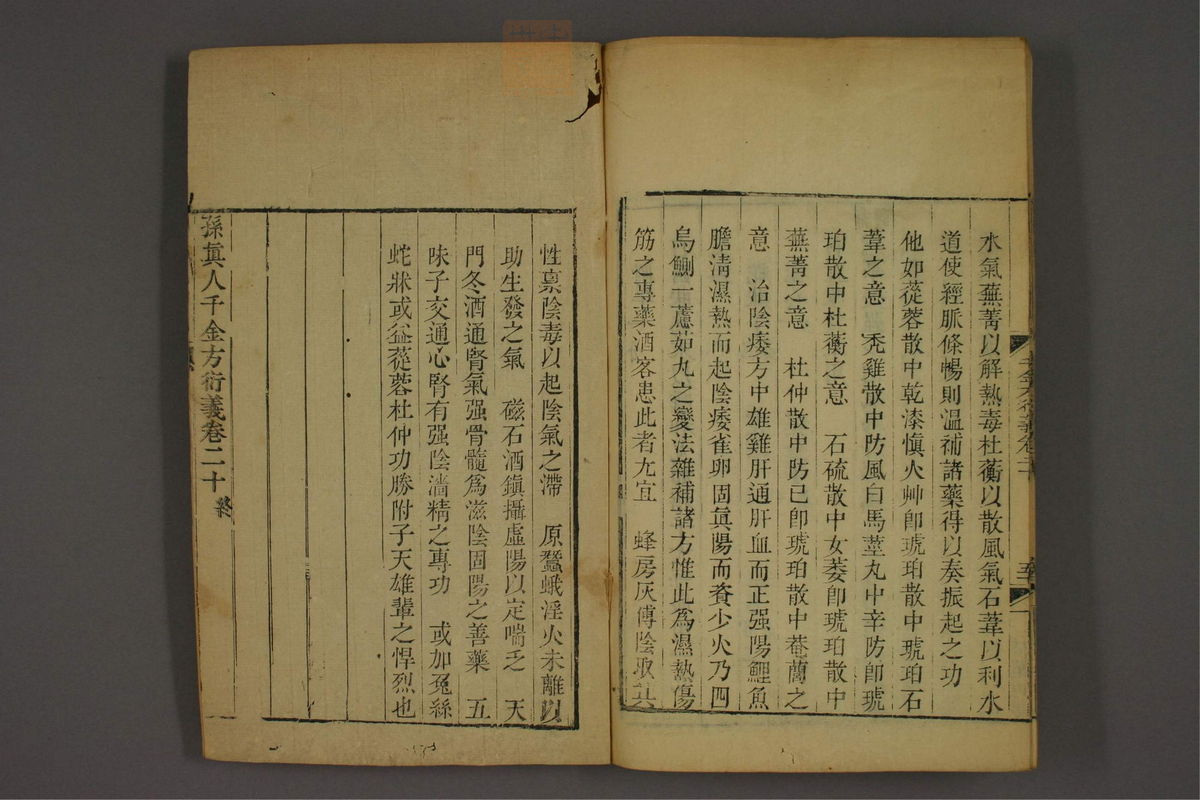 水氣蕪菁以解熱毒杜蘅以散風氣石葦以利水
道使經脈條暢則溫補諸藥得以奏振起之功
他如蓯蓉散中乾漆愼火艸卽琥珀散中琥珀石
葦之意　禿雞散中防風白馬莖丸中辛防卽琥
珀散中杜蘅之意　石硫散中女萎卽琥珀散中
蕪菁之意　杜仲散中防已卽琥珀散中菴䕡之
意　治陰痿方中雄雞肝通肝血而正强陽鯉魚
膽淸濕熱而起陰痿雀卵固眞陽而資少火乃四
烏鰂一蘆茹丸之變法雜補諸方惟此爲濕熱傷
筋之專藥酒客患此者尤宜　蜂房灰傅陰取其
性禀陰毒以起陰氣之滯　原蠶蛾淫火未離以
助生發之氣　磁石酒鎭攝虛陽以定喘乏　天
門冬酒通腎氣强骨髓爲滋陰固陽之善藥　五
味子交通心腎有强陰濇精之專功　或加兔絲
蛇牀或益蓯蓉杜仲功勝附子天雄輩之悍烈也
孫眞人千金方衍義卷二十終